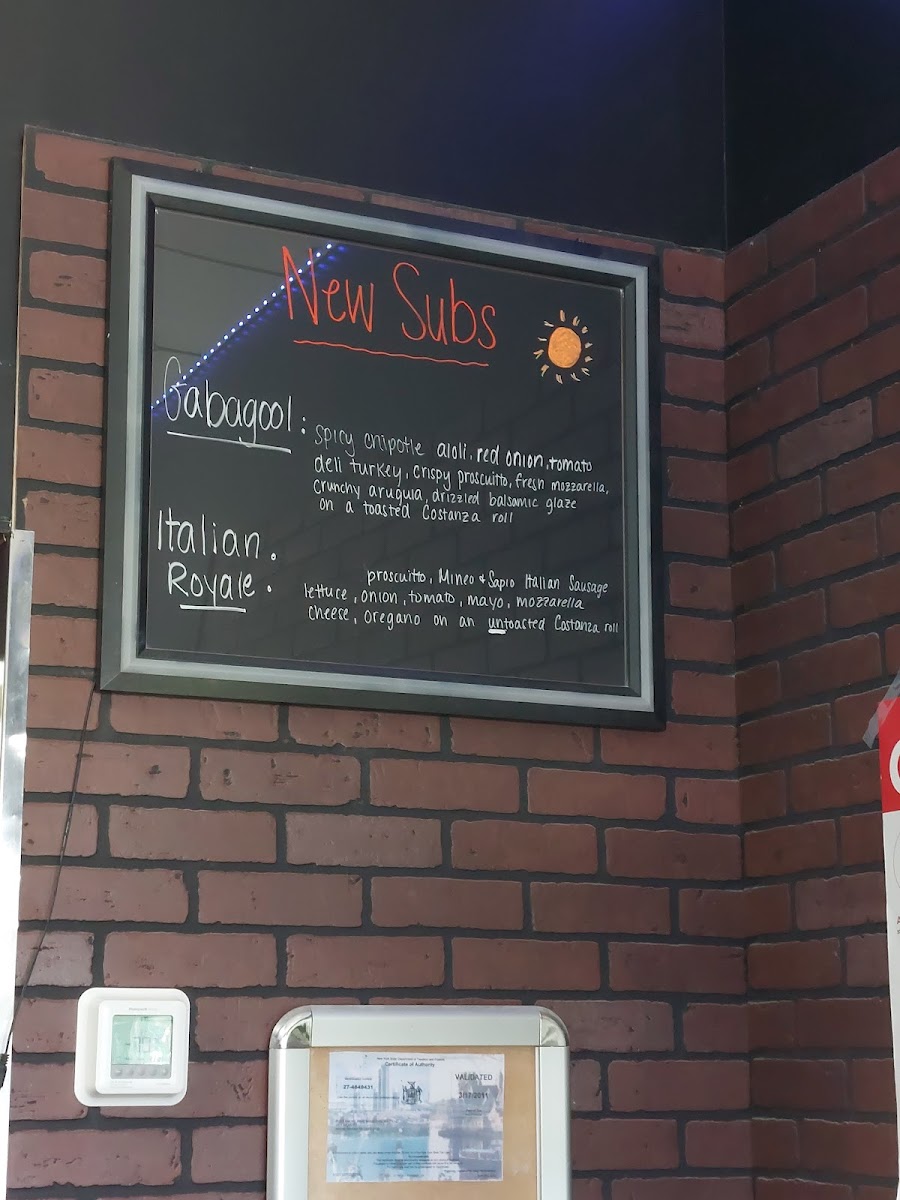 New Subs
Gabagool:
spicy chipotle aioli, red onion, tomato
deli turkey, crispy proscuitto, fresh mozzarella,
crunchy arugula, drizzled balsamic glaze
on a toasted Costanza roll
Italian
Royale:
proscuitto, Mineo & Sapio Italian Sausage
lettuce, onion, tomato, mayo, mozzarella
cheese, oregano on an untoasted Costanza roll
Certificate of Authority
VALIDATED